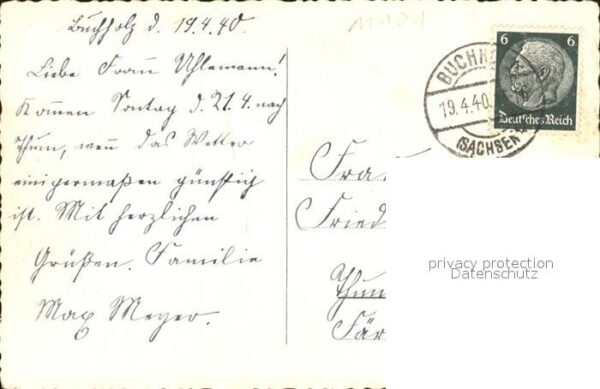 11101
Buchholz d. 19.4.40.
Liebe Frau Uhlemann!
Kommen Sontag d. 21.4. nach
Thum, wenn das Wetter
einigermaßen günstig
ist. Mit herzlichen
Grüßen. Familie
Max Meyer.
6 6
Deutsches Reich
BUCHH
19.4.40.
(SACHSEN
Fra
Fried
Thum
Fär
privacy protection
Datenschutz